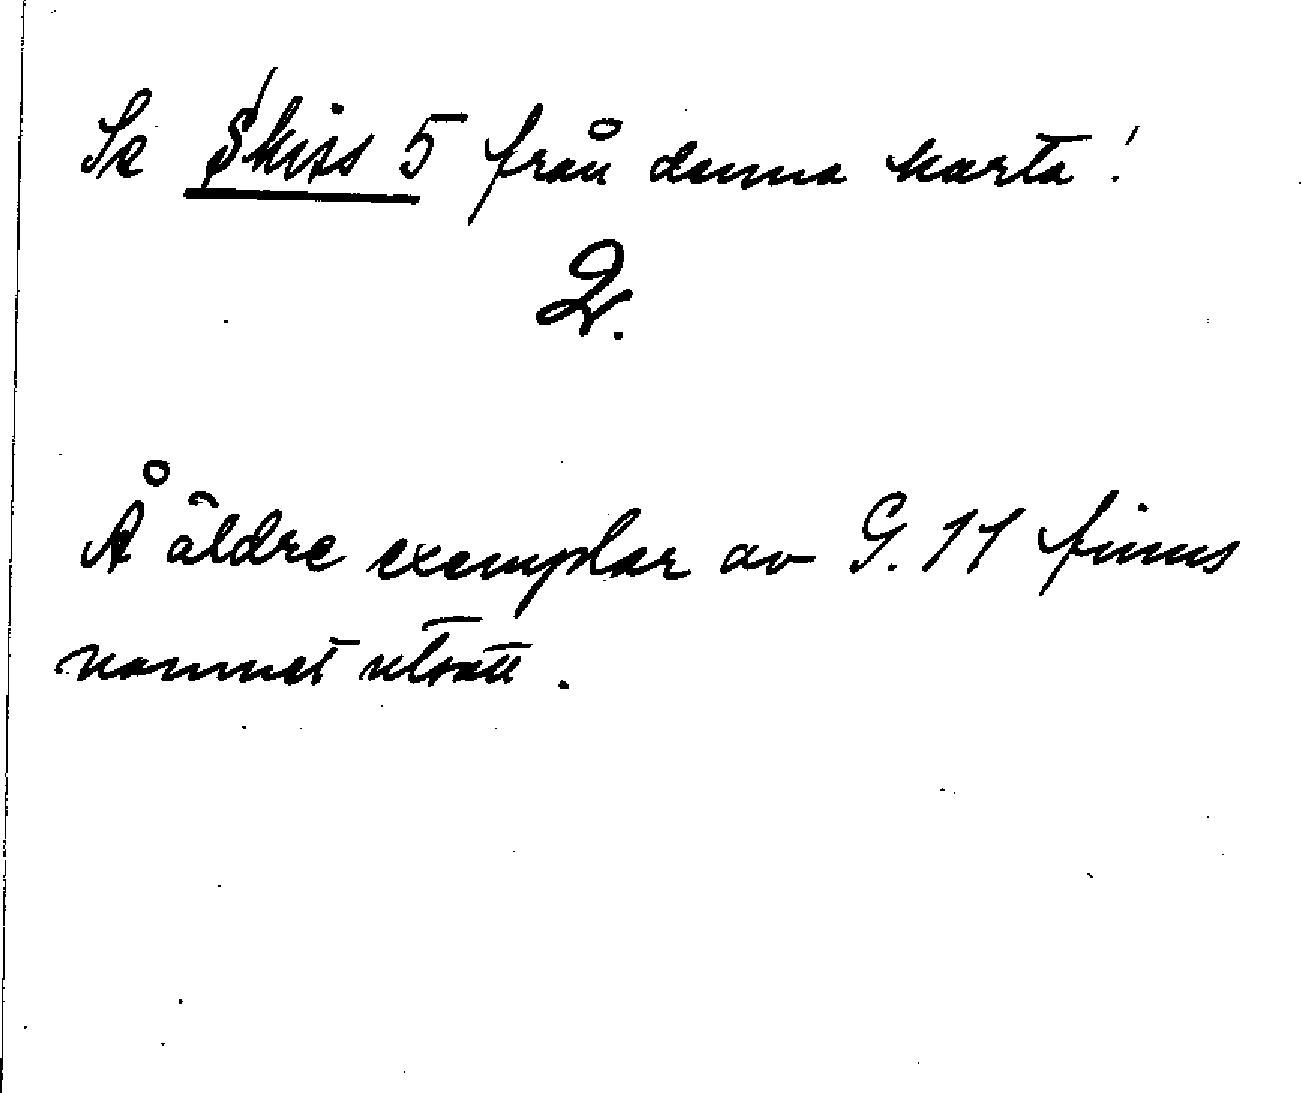 Se Skiss 5 från denna karta!
Å äldre exemplar av G. 11 finns
namnet utsatt.